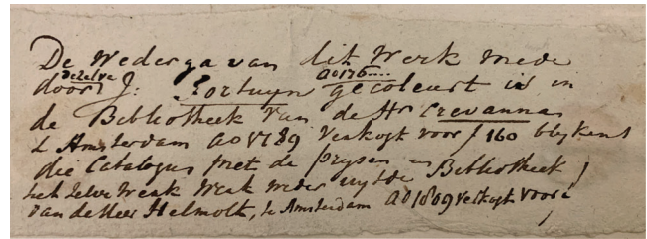 De Wederga van dit Werk mede
door dezelve J: Fortuyn ao 176.... gecoleurt is in
de Bibliotheek van de Hr Crevanna
t Amsterdam ao 1789 verkogt voor f 160 blykens
die Catalogus met de prysen
het zelve Werk Werk weder uyt de Bibliotheek
van de Heer Helmolt, te Amsterdam ao 1809 verkogt voor